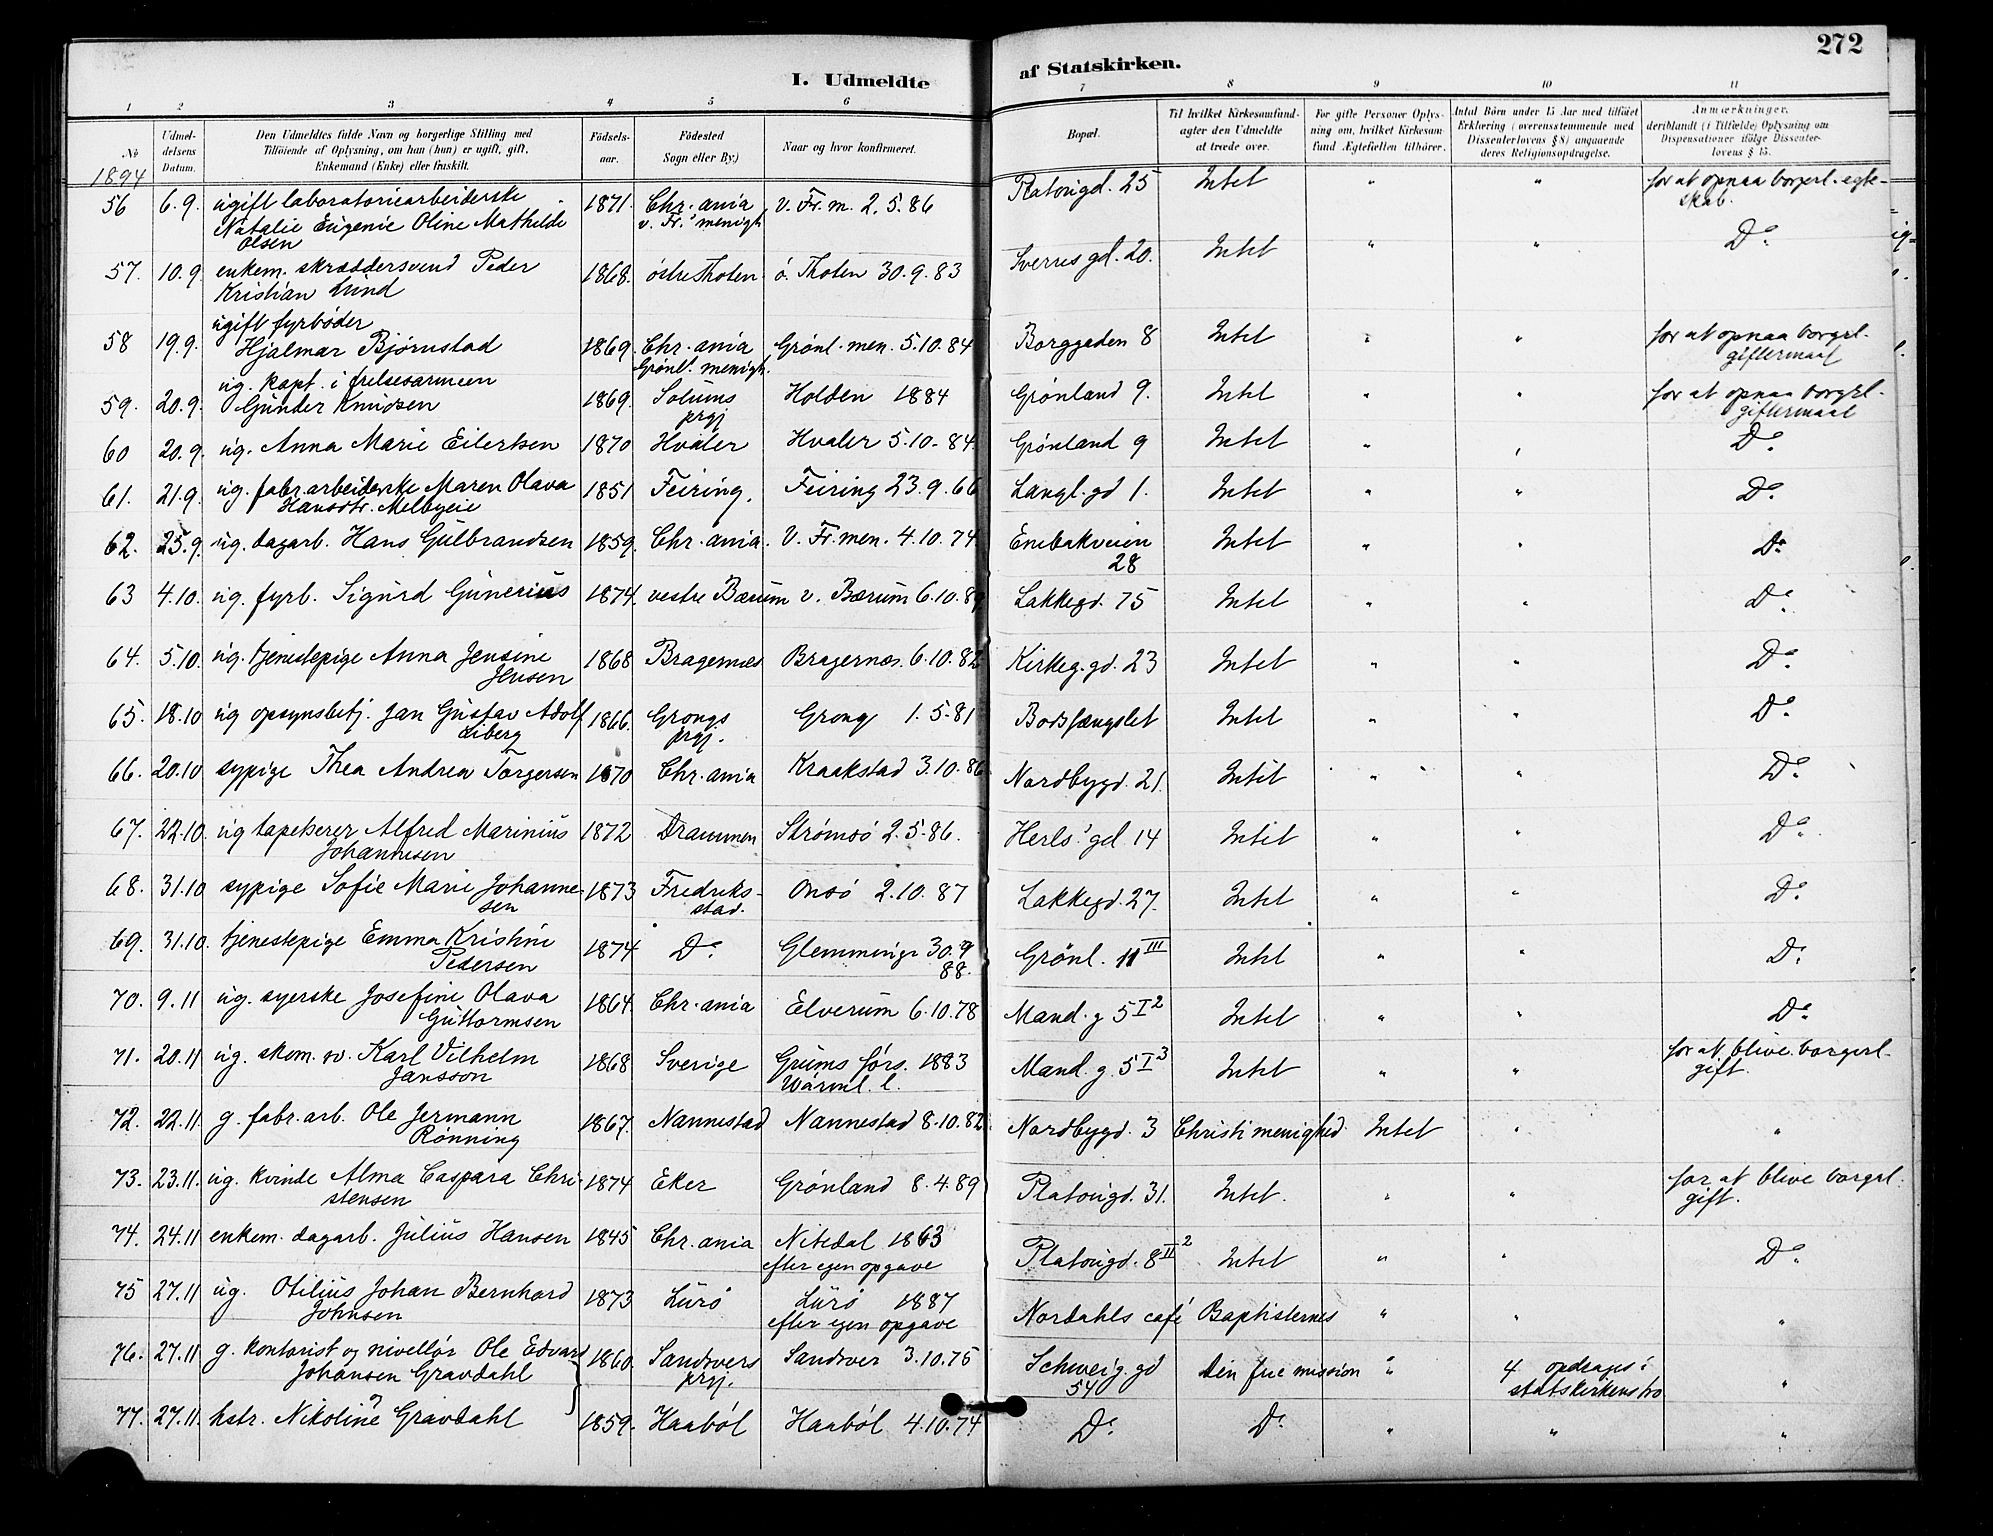 272
I. Udmeldte af Statskirken.
1 2 3 4 5 6 7 8 9 10 11
No
Udmeldelsens Datum.
Den Udmeldtes fulde Navn og borgerlige Stilling med
Tilføiende af Oplysning, om han (hun) er ugift, gift,
Enkemand (Enke) eller fraskilt.
Fødselsaar.
Fødested
Sogn eller By.)
Naar og hvor konfirmeret.
Bopæl.
Til hvilket Kirkesamfund
agter den Udmeldte
at træde over.
For gifte Personer Oplysning
om, hvilket Kirkesamfund
Ægtefællen tilhører.
Antal Børn under 15 Aar med tilføiet
Erklæring (overensstemmende med
Dissenterlovens § 8) angaaende
deres Religionsopdragelse.
Anmærkninger,
deriblandt (i Tilfælde) Oplysning om
Dispensationer ifølge Dissenterlovens § 15.
1894
56 6.9. ugift laboratoriearbeiderske 1871. Chr.ania V. Fr. m. 2.5.86 Platougd. 25 Intet " " for at opnaa borgerl. egteskab.
Natalie Eugenie Oline Mathilde v. Fr.' menigh
Olsen
57. 10.9. enkem. skræddersvend Peder 1868. østre Thoten ö. Thoten 30.9.83 Sverres gd. 20. Intet " " Do.
Kristian Lund
58 19.9. ugift fyrbøder
Hjalmar Bjørnstad 1869. Chr.ania Grønl. men. 5.10.84 Borggaden 8 Intet " " for at opnaa borgerl. giftermaal
Grønl. menigh.
59. 20.9. ug. kapt. i frelsesarmeen
Gunder Knudsen 1869. Solums prgj Holden 1884 Grønland 9. Intet " " for at opnaa borgerl. giftermaal
60 20.9. ug. Anna Marie Eilertsen 1870 Hvaler Hvaler 5.10.84 Grønland 9 Intet " " Do.
61. 21.9. ug. fabr.arbeiderske Maren Olava 1851 Feiring. Feiring 23.9.66 Langl.gd 1. Intet " " Do.
Hansdtr. Melbyeie
62. 25.9. ug. dagarb. Hans Gulbrandsen 1859. Chr.ania. V. Fr. men. 4.10.74 Enebakveien 28 Intet " " Do.
63 4.10. ug. fyrb. Sigurd Gunerius 1874. vestre Bærum v. Bærum 6.10.89 Lakkegd. 75 Intet " " Do.
64. 5.10. ug. tjenestepige Anna Jensine 1868 Bragernæs Bragernæs. 6.10.82 Kirkeg.gd. 23 Intet " " Do.
Jensen
65. 18.10 ug opsynsbetj. Jan Gustav Adolf 1866. Grongs prgj. Grong 1.5.81 Bodsfængslet Intet " " Do.
Liberg
66. 20.10 sypige Thea Andrea Torgersen 1870 Chr.ania Kraakstad 3.10.86 Nordbygd. 21. Intet " " Do.
67. 22.10. ug tapetserer Alfred Marinius 1872 Drammen Strømsö 2.5.86. Herls.' gd. 14 Intet " " Do.
Johannesen
68. 31.10 sypige Sofie Marie Johannesen 1873 Fredriksstad. Onsö 2.10.87 Lakkegd. 27. Intet " " Do.
69. 31.10. tjenestepige Emma Kristine 1874 Do. Glemminge 30.9 88. Grönl. 11 III Intet " " Do.
Pedersen
70. 9.11 ug. syerske Josefine Olava 1864. Chr.ania Elverum 6.10.78 Mand.g 5 I 2 Intet " " Do.
Guttormsen
71. 20.11 ug. skom.sv. Karl Vilhelm 1868 Sverige Grums förs. 1883 Mand.g. 5 I 3 Intet " " for at blive borgerl. gift.
Jansson Wärml. l.
72. 22.11. g. fabr.arb. Ole Jermann 1867. Nannestad Nannestad 8.10.82 Nordbygd. 3 Christi menighed Intet " "
Rønning
73. 23.11. ug. kvinde Alma Caspara Christensen 1874 Eker Grønland 8.4.89 Platougd. 31. Intet. " " for at blive borgerl. gift.
74. 24.11 enkem. dagarb. Julius Hansen 1845 Chr.ania Nitedal 1863 Platougd. 8 II 2 Intet " " Do.
efter egen opgave
75 27.11 ug. Otilius Johan Bernhard 1873 Lurö Lurö 1887 Nordahls café Baptisternes " " "
Johnsen efter egen opgave
76. 27.11 g. kontorist og nivellør Ole Edvard 1860. Sandsvers prgj. Sandsver 3.10.75 Schweig.gd 54 Den frie mission " 4 opdrages i statskirkens tro "
Johansen Gravdahl
77. 27.11 hstr. Nikoline Gravdahl 1859. Haaböl Haaböl 4.10.74 Do. Do. " " "